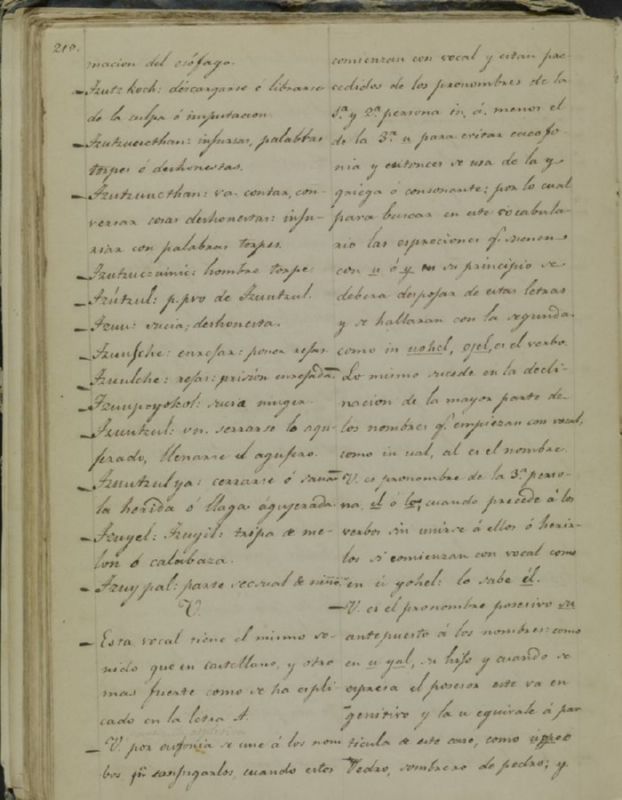 210.
macion del esófago.
Tzutz koch: descargarse ó librarse
de la culpa ó imputacion
infusas, palabras
torpes ó deshonestas.
va. contar, con-
versar cosas deshonestas: infu-
con palabras torpes.
hombre torpe
Tzútzul: p. pvo de Tzuutzul.
Tzuu: sucia; deshonesta.
enrejar: poner rejas
rejas: prisión enrejada
sucia muger.
Tzuutzul: vn. serrarse lo agu-
jerado, llenarse el agujero.
Tzuutzulya: cerrarse ó sanar
la herida ó llaga agujerada
Tzuyel: Tzuyil: tripa de me-
lon ó calabaza.
Tzuy pal: parte secsual de niño
V.
Esta vocal tiene el mismo so-
nido que en castellano, y otro
mas fuerte como se ha espli
cado en la letra A.
V. por eufonia se une á los nom
bos cuando estos
comienzan con vocal y estan pre-
cedidos de los pronombres de la
1ª y 2ª persona in, á, menos el
de la 3ª u para evitar cacofo-
nia y entonces se usa de la y
griega ó consonante; por lo cual
para buscar en este vocabula-
rio las espreciones q. suenen
con u ó y en su principio se
debera despojar de estas letras
y se hallaran con la segunda.
como in uohel, ojel, es el verbo.
Lo mismo sucede en la decli-
nacion de la mayor parte de
los nombres q. empiezan con vocal,
como in ual, al es el nombre.
V. es pronombre de la 3ª perso-
na, el ó los, cuando precede á los
verbos sin unirse á ellos ó herir-
los si comienzan con vocal como
en u yohel: lo sabe él.
V. es el pronombre posesivo su
antepuesto á los nombres: como
en u yal, su hijo y cuando se
espresa el posesor este va en
genitivo y la u equivale á par
ticula de este caso, como
Pedro, sombrero de pedro; y